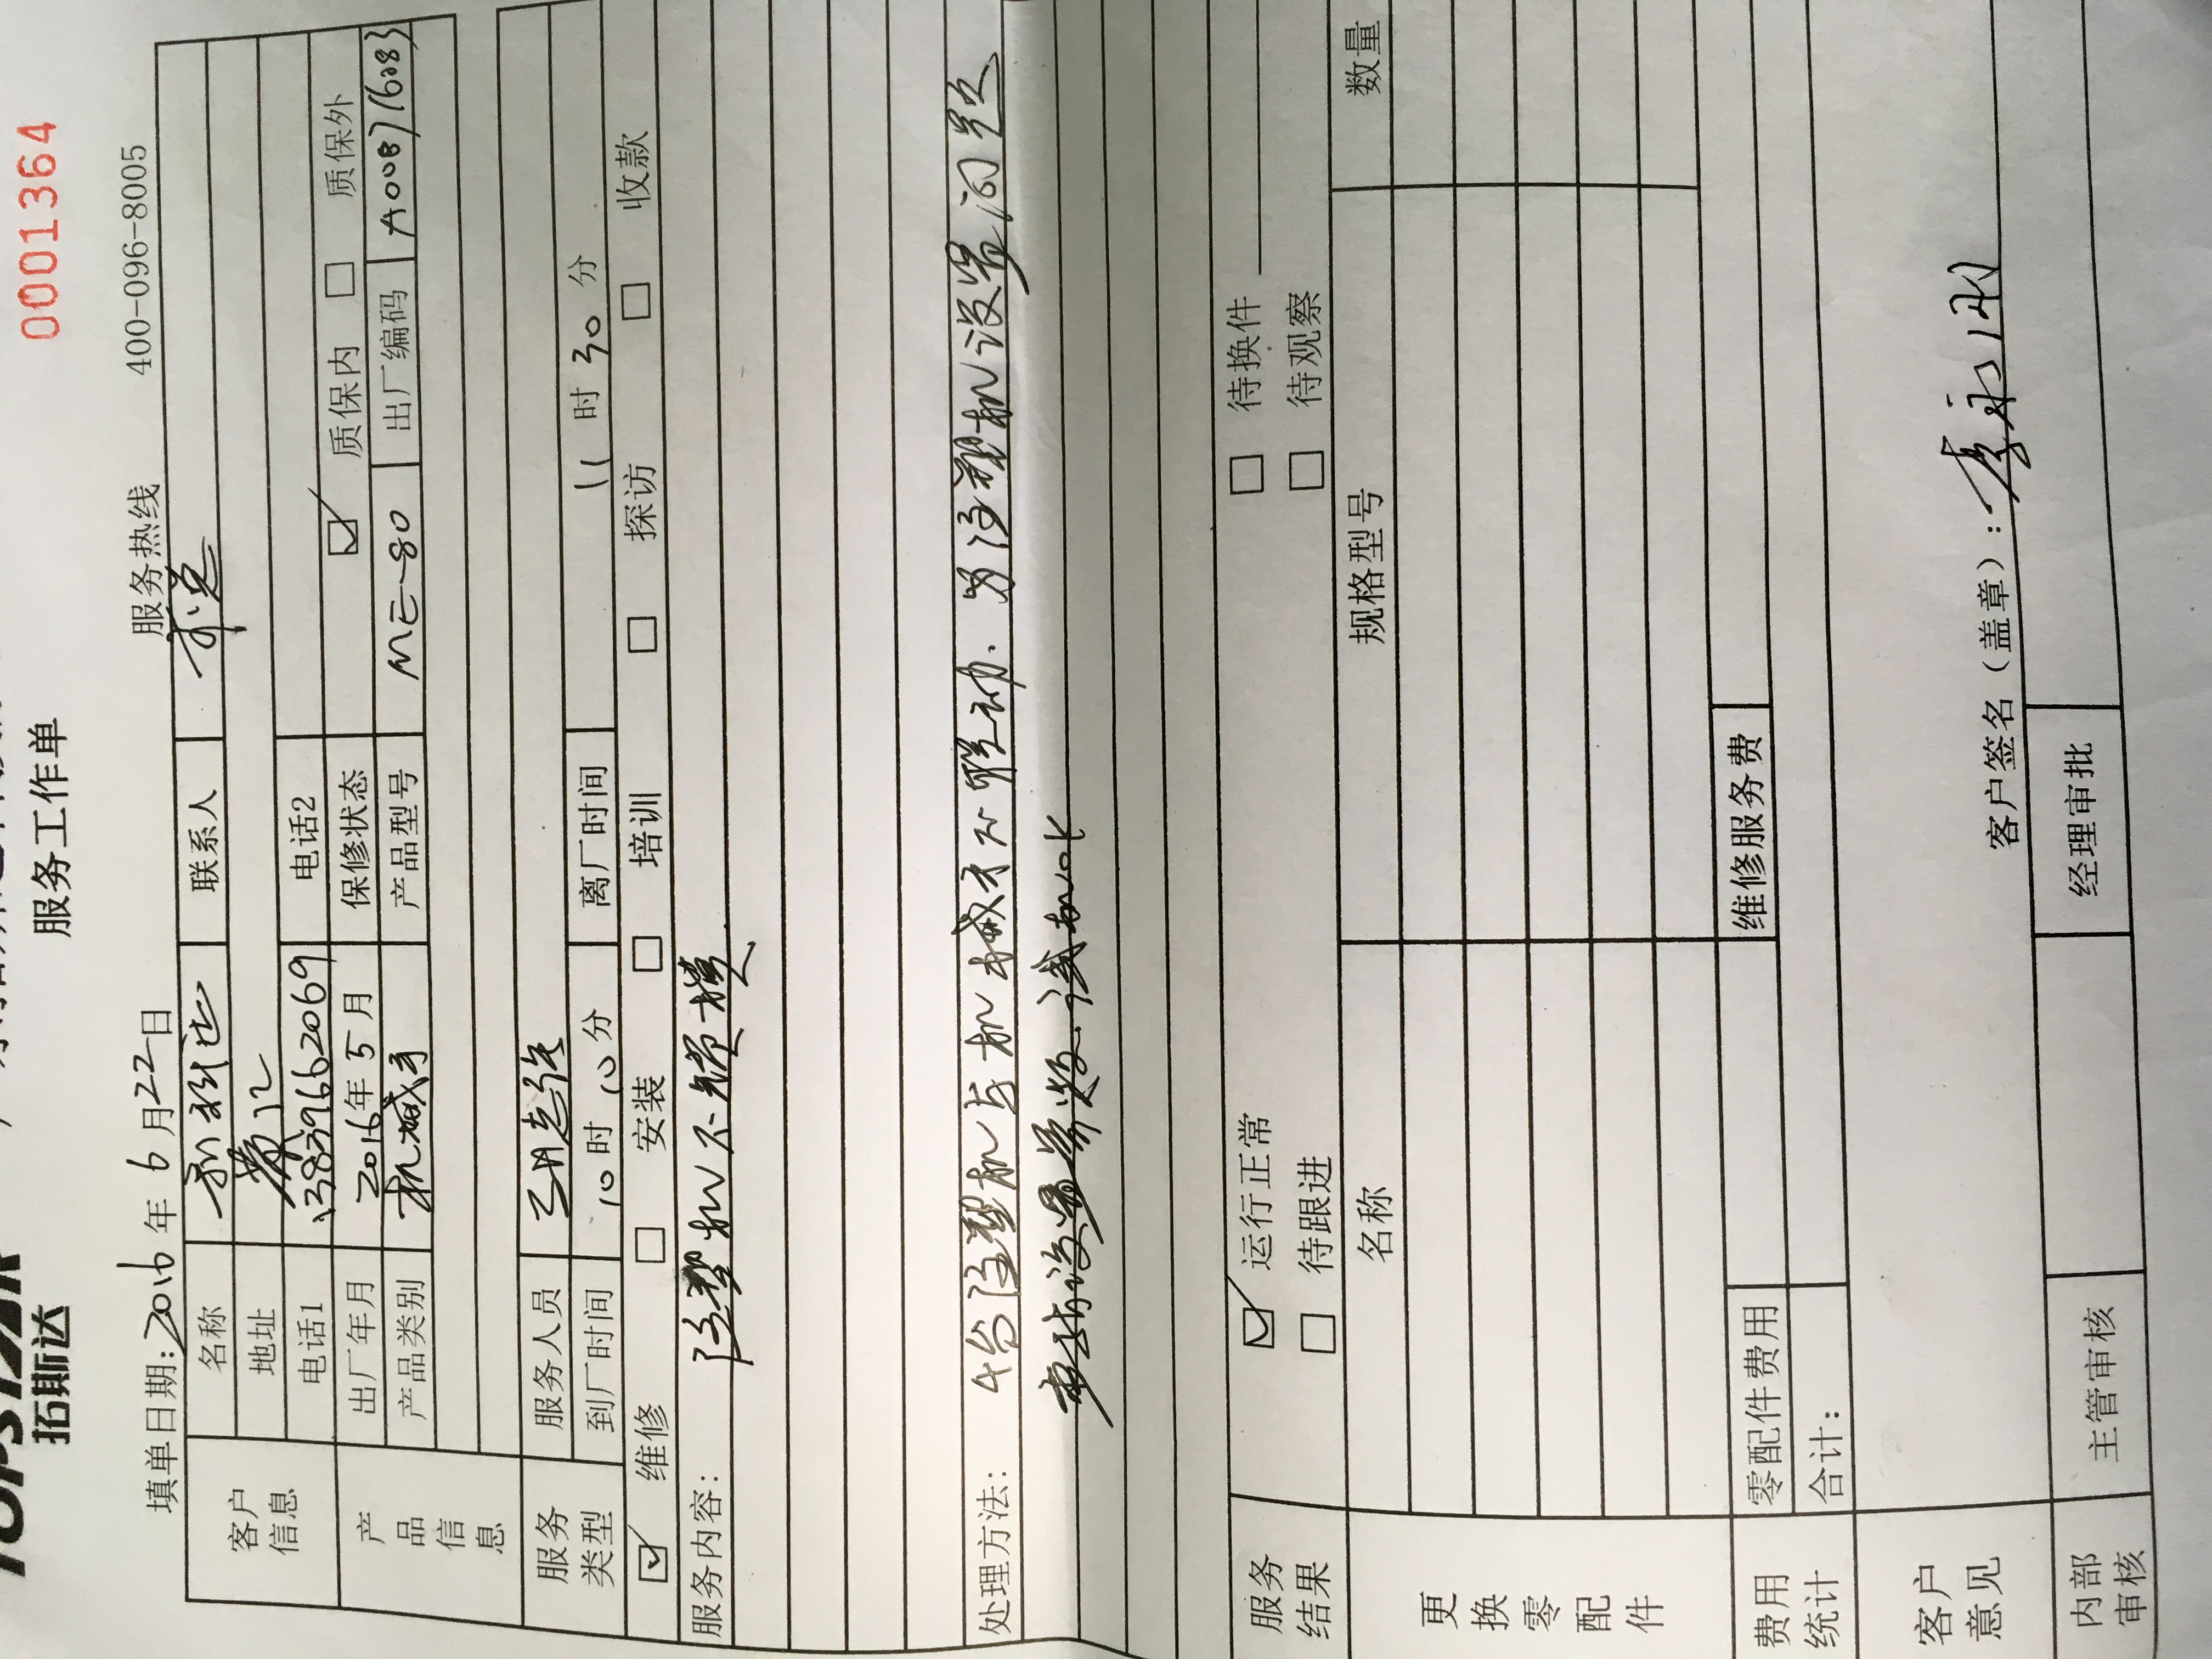 拓斯达
服务工作单
0001364
填单日期:2016年6月22日 服务热线 400-096-8005
客户信息
名称 联系人
地址
电话1 13839662069 电话2
产品信息
出厂年月 2016年5月 保修状态 ☑ 质保内 □ 质保外
产品类别 机械手 产品型号 ME-80 出厂编码
服务类型
服务人员
到厂时间 10时10分 离厂时间 11时30分
☑ 维修 □ 安装 □ 培训 □ 探访 □ 收款
服务内容: 注塑机不锁模
处理方法: 4台注塑机与机械手不联动. 为注塑机设置问题
设置参数. 试机ok
服务结果
☑ 运行正常 □ 待换件
□ 待跟进 □ 待观察
更换零配件
名称 规格型号 数量
费用统计
零配件费用 维修服务费
合计:
客户意见
客户签名(盖章):
内部审核
主管审核 经理审批